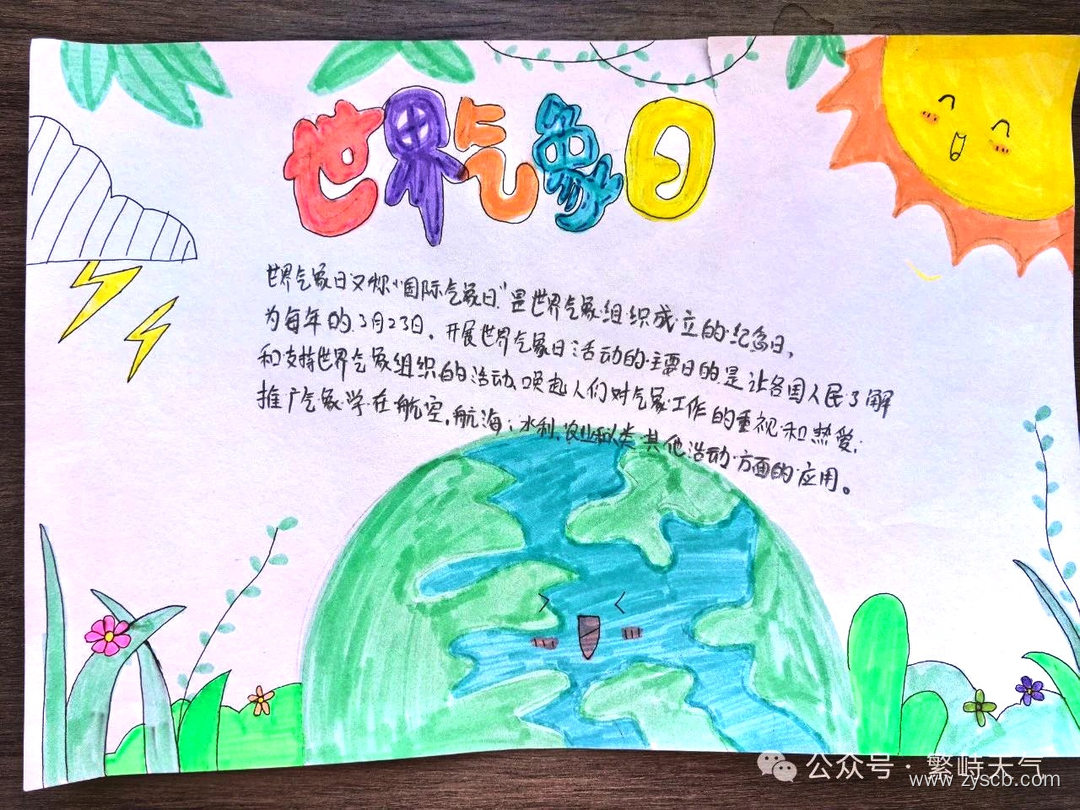 世界气象日
世界气象日又称"国际气象日"是世界气象组织成立的纪念日,
为每年的3月23日。开展世界气象日活动的主要目的是让各国人民了解
和支持世界气象组织的活动、唤起人们对气象工作的重视和热爱;
推广气象学在航空、航海、水利、农业和人类其他活动方面的应用。
公众号·繁峙天气
www.zyscb.com